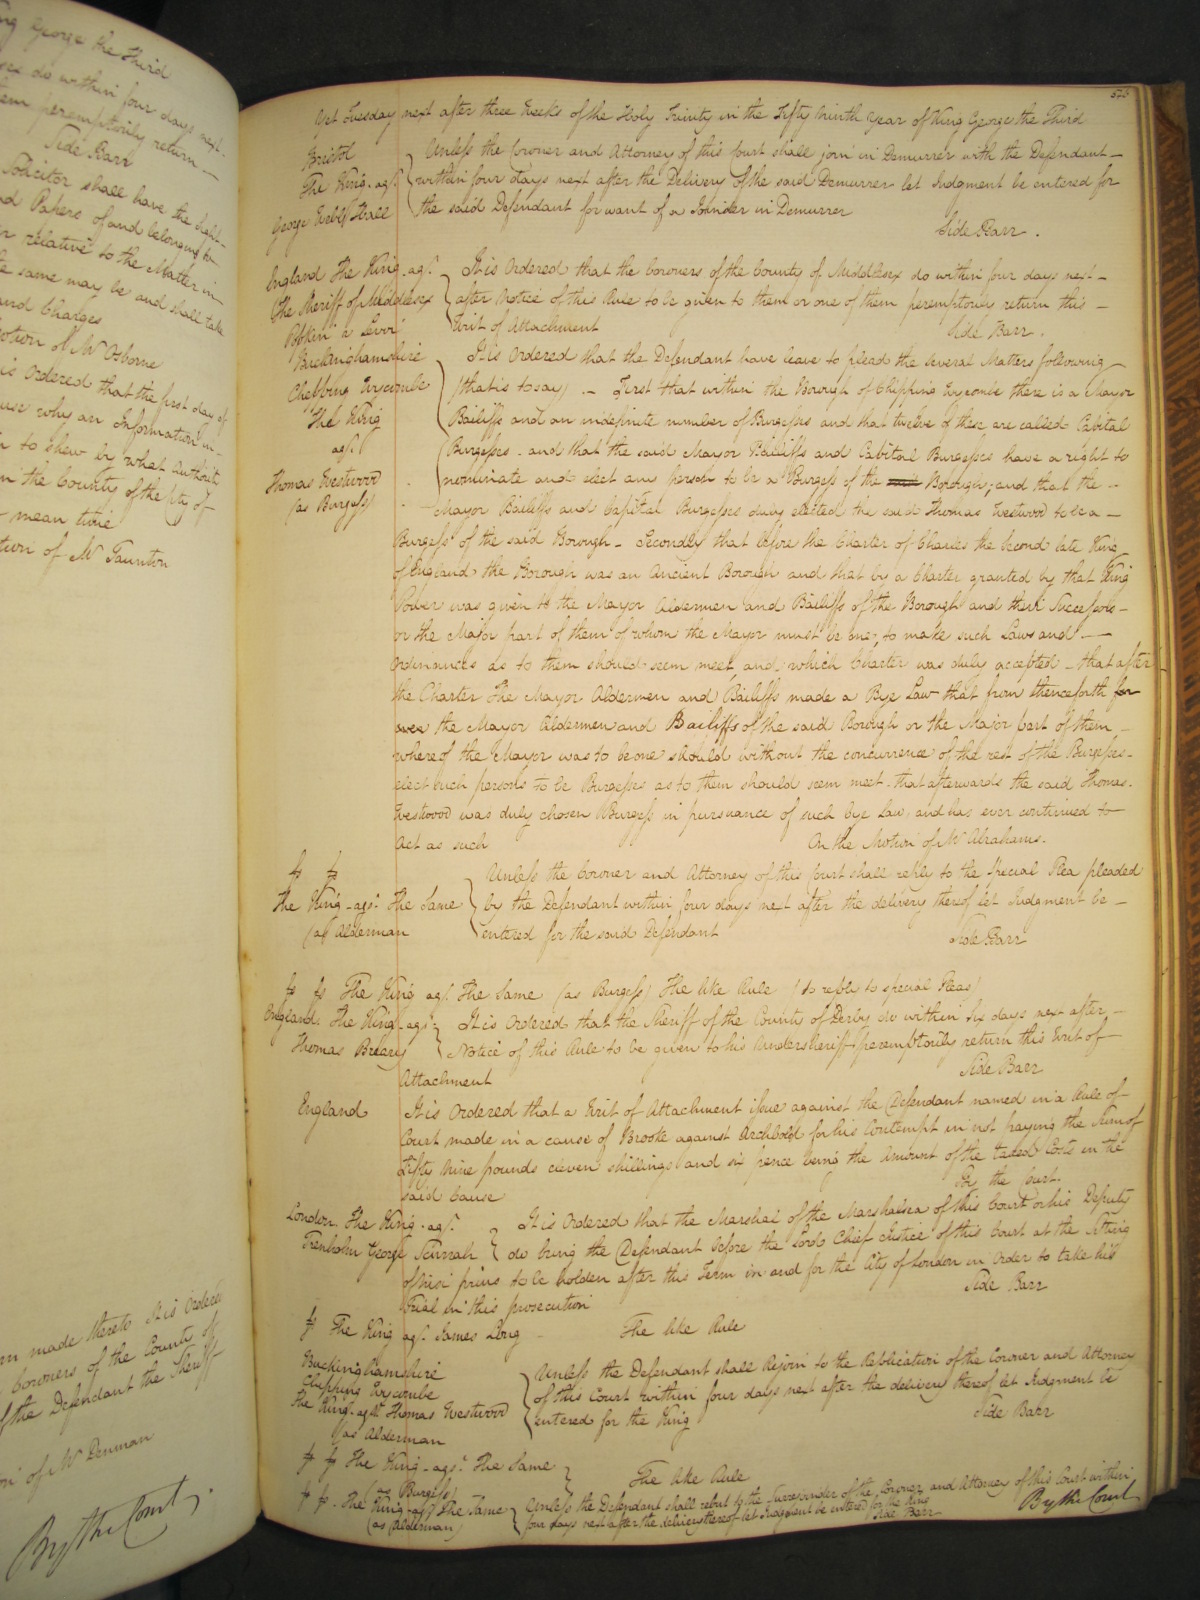 ng George the Third
ses do within four days next
tem peremptorily return
Side Barr
Solicitor shall have the sight
nd Papers of and belonging to
r relative to the Matter in
e same may be and shall take
and Charges
otion of Mr Osborne
is Ordered that the first day of
use why an Information in
n to shew by what Authority
n the County of the City of
mean time
tion of Mr Taunton
m made thereto It is Ordered
Coroners of the County of
f the Defendant the Sheriff
on of Mr Denman
By the Court
525
Yet Tuesday next after three Weeks of the Holy Trinity in the Fifty Ninth Year of King George the Third
Bristol
The King agst
George Webb Hall
Unless the Coroner and Attorney of this Court shall join in Demurrer with the Defendant
within four days next after the Delivery of the said Demurrer let Judgment be entered for
the said Defendant for want of a Joinder in Demurrer
Side Barr.
England The King agst
The Sheriff of Middlesex
It is Ordered that the Coroners of the County of Middlesex do within four days next
after Notice of this Rule to be given to them or one of them peremptorily return this
Writ of Attachment
Side Barr.
Buckinghamshire
Chepping Wycombe
The King
agst
Thomas Westwood
(as Burgess)
It is Ordered that the Defendant have leave to plead the several Matters following
(that is to say) - First that within the Borough of Chipping Wycombe there is a Mayor
Bailiffs and an indefinite number of Burgesses and that twelve of these are called Capital
Burgesses and that the said Mayor Bailiffs and Capital Burgesses have a right to
nominate and elect any person to be a Burgess of the Borough; and that the
Mayor Bailiffs and Capital Burgesses duly elected the said Thomas Westwood to be a
Burgess of the said Borough - Secondly that before the Charter of Charles the Second late King
of England the Borough was an Ancient Borough and that by a Charter granted by that King
Power was given to the Mayor Aldermen and Bailiffs of the Borough and their Successors
or the Major part of them of whom the Mayor must be one, to make such Laws and
Ordinances as to them should seem meet, and which Charter was duly accepted - that after
the Charter The Mayor Aldermen and Bailiffs made a Bye Law that from thenceforth for
ever the Mayor Aldermen and Bailiffs of the said Borough or the Major part of them
whereof the Mayor was to be one should without the concurrence of the rest of the Burgesses
elect such persons to be Burgesses as to them should seem meet - that afterwards the said Thomas
Westwood was duly chosen Burgess in pursuance of such bye Law, and has ever continued to
act as such
On the Motion of Mr Abrahams.
The King agst The Same
(as Alderman
Unless the Coroner and Attorney of this Court shall reply to the Special Plea pleaded
by the Defendant within four days next after the delivery thereof let Judgment be
entered for the said Defendant
Side Barr
The King agst The Same (as Burgess) The like Rule (to reply to special Pleas)
England The King agst
Thomas Breary
It is Ordered that the Sheriff of the County of Derby do within Six days next after
Notice of this Rule to be given to his Undersheriff peremptorily return this Writ of
Attachment
Side Barr
England
It is Ordered that a Writ of Attachment issue against the Defendant named in a Rule of
Court made in a cause of Brooke against Archbold for his Contempt in not paying the Sum of
Fifty Nine pounds eleven shillings and six pence being the amount of the taxed Costs in the
said Cause
By the Court.
London The King agst
George
It is Ordered that the Marshal of the Marshalsea of this Court or his Deputy
do bring the Defendant before the Lord Chief Justice of this Court at the Sitting
of nisi prius to be holden after this Term in and for the City of London in Order to take his
Trial in this prosecution
Side Barr
The King agst James Long
The like Rule
Buckinghamshire
Chepping Wycombe
The King agst Thomas Westwood
(as Alderman
Unless the Defendant shall Rejoin to the Replication of the Coroner and Attorney
of this Court within four days next after the delivery thereof let Judgment be
entered for the King
Side Barr
The King agst The Same
(as Burgess)
The like Rule
The King agst The Same
(as Alderman)
Unless the Defendant shall rebut to the Surrejoinder of the Coroner and Attorney of this Court within
four days next after the delivery thereof let Judgment be entered for the King
Side Barr
By the Court